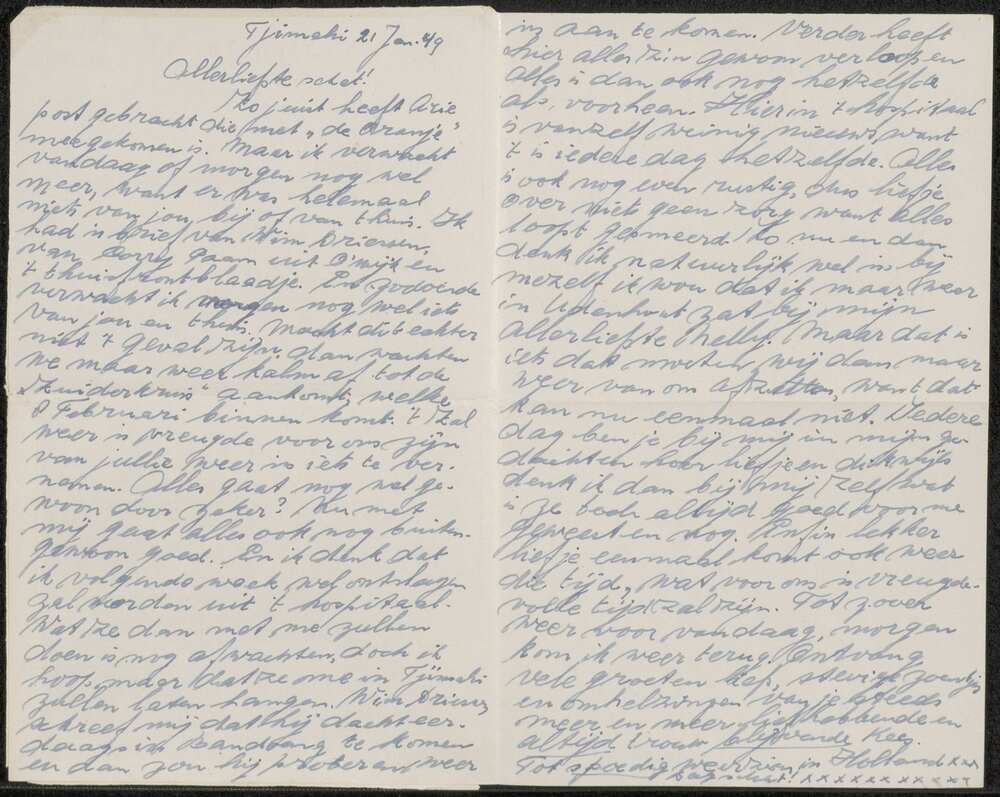 Tjimahi 21 Jan. 49
Allerliefste schat!
Zo juist heeft Arie
post gebracht die met „de Oranje"
meegekomen is. Maar ik verwacht
vandaag of morgen nog wel
meer, want er was helemaal
niets van jou bij of van thuis. Ik
had 'n brief van Wim Driesen,
van Corry Daam uit O'wijk en
't thuisfrontblaadje. En zodoende
verwacht ik morgen nog wel iets
van jou en thuis. Mocht dit echter
niet 't geval zijn, dan wachten
we maar weer kalm af tot de
„Zuiderkruis" aankomt, welke
8 Februari binnen komt. 't Zal
weer 'n vreugde voor ons zijn
van jullie weer 'ns iets te ver-
nemen. Alles gaat nog wel ge-
woon door zeker? Nu met
mij gaat alles ook nog buiten-
gewoon goed. En ik denk dat
ik volgende week wel ontslagen
zal worden uit 't hospitaal.
Wat ze dan met me zullen
doen is nog afwachten, doch ik
hoop maar dat ze me in Tjimahi
zullen laten hangen. Wim Driesen
schreef mij dat hij dacht eer-
daags in Bandoeng te komen
en dan zou hij proberen weer
in aan te komen. Verder heeft
hier alles z'n gewoon verloop en
alles is dan ook nog hetzelfde
als voorheen. Hier in 't hospitaal
is vanzelf weinig nieuws, want
't is iedere dag hetzelfde. Alles
is ook nog even rustig, dus liefje
over niets geen zorg want alles
loopt gesmeerd. Zo nu en dan
denk ik natuurlijk wel 'ns bij
mezelf ik wou dat ik maar weer
in Udenhout zat bij mijn
allerliefste Nelly. Maar dat is
iets dat moeten wij dan maar
weer van om afzetten, want dat
kan nu eenmaal niet. Iedere
dag ben je bij mij in mijn ge-
dachten hoor liefje en dikwijls
denk ik dan bij mij zelf wat
is ze toch altijd goed voor me
geweest en nog. Enfin lekker
liefje eenmaal komt ook weer
die tijd, wat voor ons 'n vreugde-
volle tijd zal zijn. Tot zover
weer voor vandaag, morgen
kom ik weer terug. Ontvang
vele groeten lief, stevige zoentjes
en omhelzingen van je steeds
meer en meer liefhebbende en
altijd trouw blijvende Kees.
Tot spoedig weerziens in Holland x x x
Dag schat! x x x x x x x x x x x